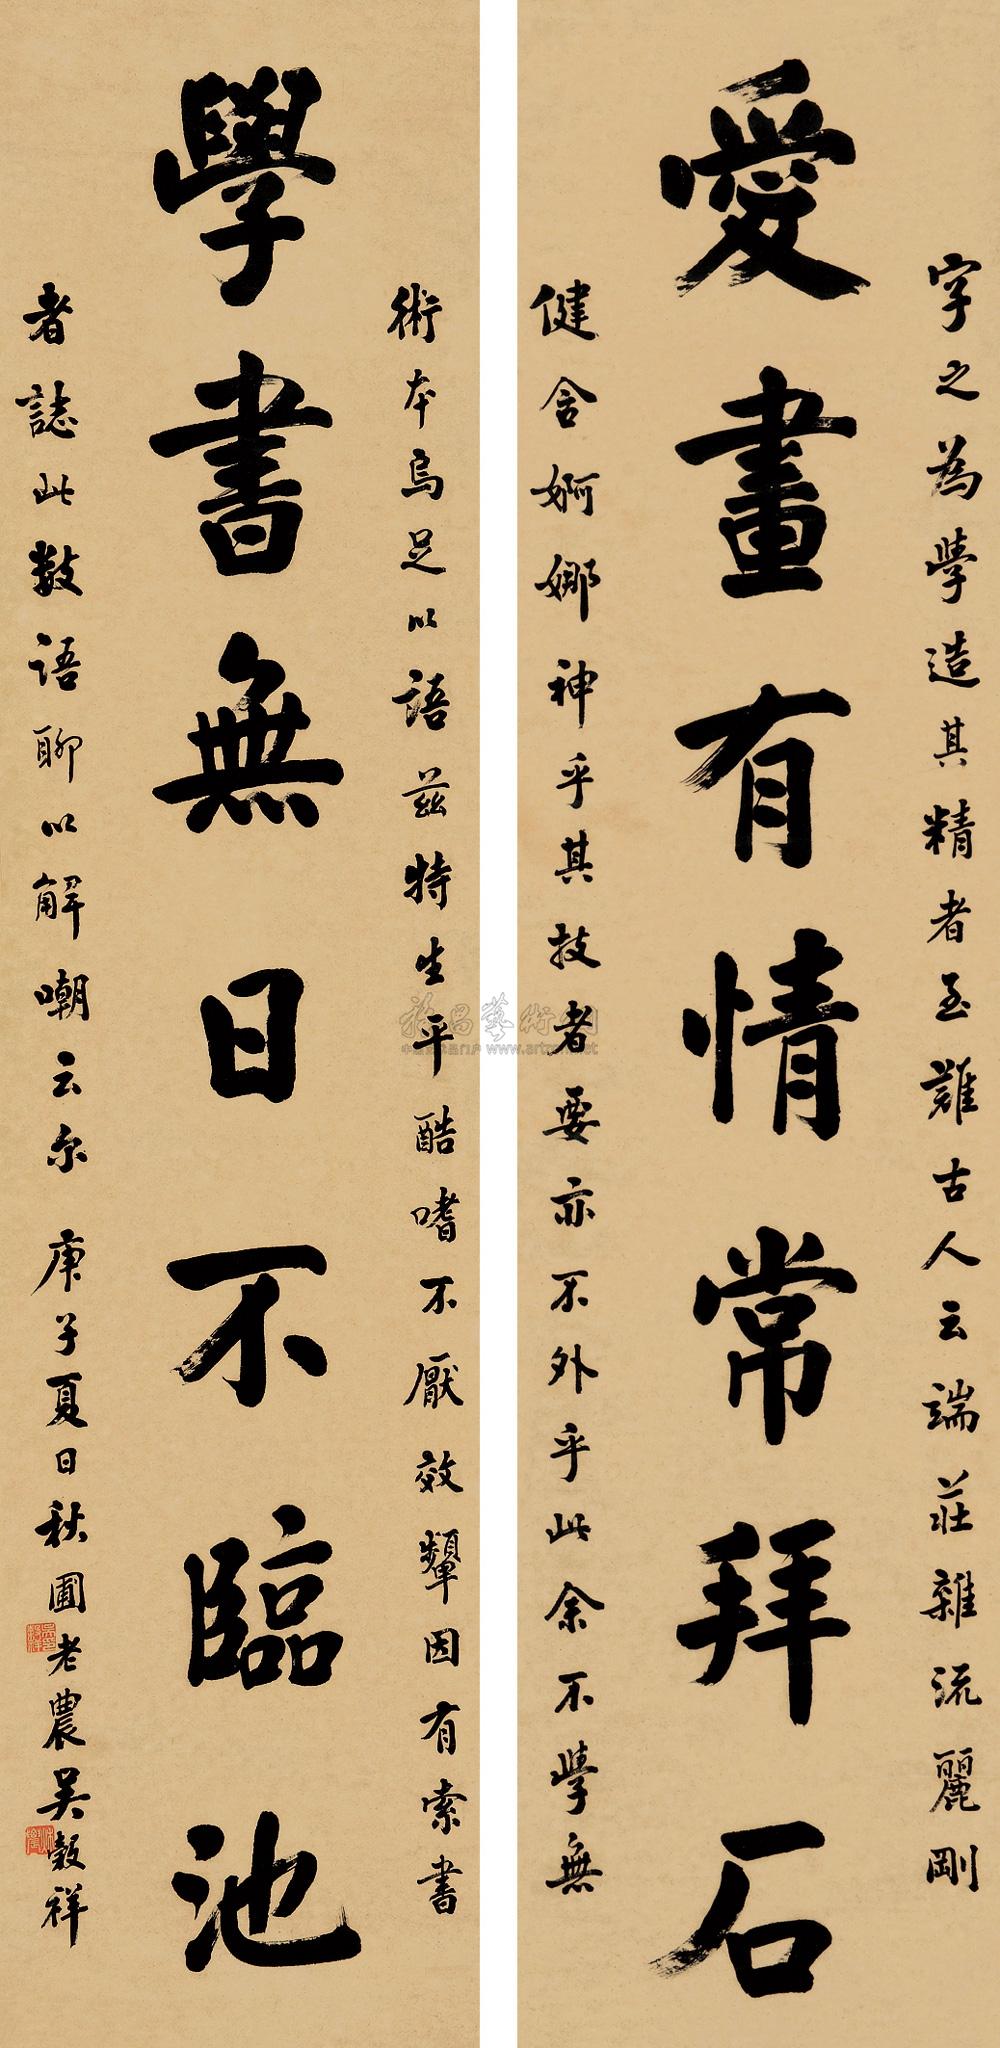 字之為學造其精者至難古人云端莊雜流麗剛
愛畫有情常拜石
健含婀娜神乎其技者要亦不外乎此余不學無
術本烏足以語茲特生平酷嗜不厭效顰因有索書
學書無日不臨池
者誌此數語聊以解嘲云尔 庚子夏日秋圃老農吳穀祥
www.artxun.net